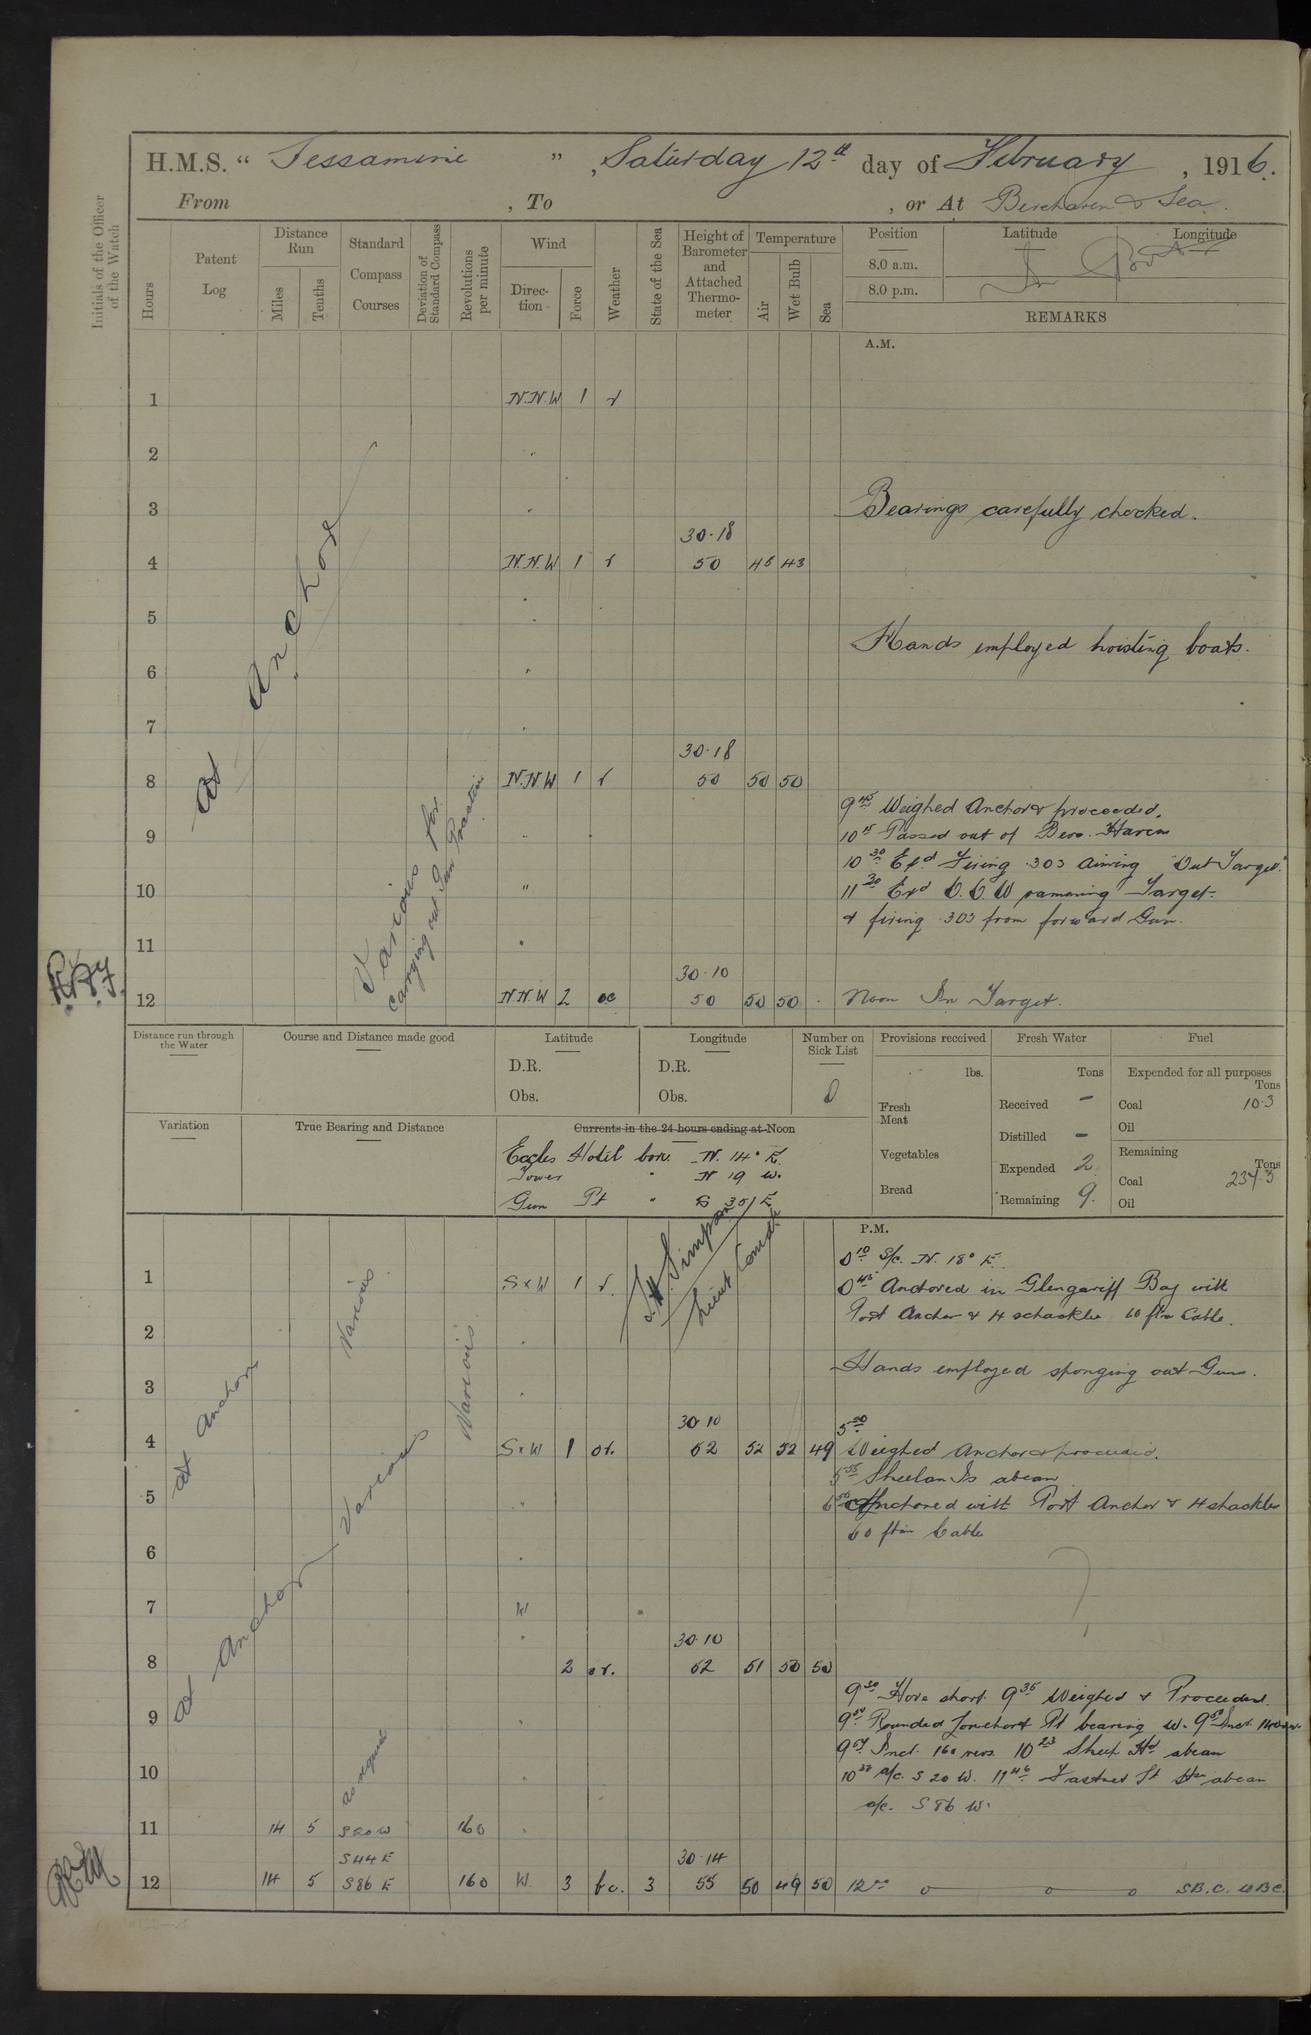 H.M.S. “ Jessamine ” , Saturday 12th day of February , 1916.
From , To , or At Berehaven & Sea.
Initials of the Officer of the Watch
Hours
Patent Log
Distance Run
Miles
Tenths
Standard Compass Courses
Deviation of Standard Compass
Revolutions per minute
Wind
Direction
Force
Weather
State of the Sea
Height of Barometer and Attached Thermometer
Temperature
Air
Wet Bulb
Sea
Position
8.0 a.m.
8.0 p.m.
Latitude
Longitude
REMARKS
A.M.
At Anchor
Various for
carrying out Gun Practice
1 N.N.W 1 r
2 "
3 " Bearings carefully checked.
30.18
4 N.N.W 1 r 50 45 43
5 "
Hands employed hoisting boats.
6 "
7 "
30.18
8 N.N.W 1 r 50 50 50
9.45 Weighed Anchor & proceeded.
9 " 10.15 Passed out of Bere. Haven
10.30 Exd Firing .303 aiming Out Target.
10 " 11.30 Exd ramming Target
& firing .303 from forward Gun.
11 "
30.10
12 N.N.W 2 oc 50 50 50 Noon In Target.
Distance run through the Water
Course and Distance made good
Latitude
D.R.
Obs.
Longitude
D.R.
Obs.
Number on Sick List
0
Provisions received
lbs.
Fresh Meat
Vegetables
Bread
Fresh Water
Tons
Received -
Distilled -
Expended 2
Remaining 9.
Fuel
Expended for all purposes
Tons
Coal 10.3
Oil
Remaining
Tons
Coal 237.3
Oil
Variation
True Bearing and Distance
Currents in the 24 hours ending at Noon
Eccles Hotel bore N. 14° E.
Tower " N 19 W.
Gun Pt " S 35 E
Simpson
Lieut Comdr
P.M.
At Anchor
Various
Various
0.10 S/c. N. 18° E.
1 S x W 1 r. 0.45 Anchored in Glengariff Bay with
Port Anchor & 4 schackles 60 ftm Cable.
2 "
Hands employed sponging out Guns.
3 "
30.10 5.00
4 S x W 1 or. 52 52 52 49 Weighed Anchor & proceeded.
5.55 Sheelan Is abeam
5 " Anchored with Port Anchor & 4 shackles
60 ftm Cable
6 "
At Anchor Various
7 W
" 30.10
8 2 or. 52 51 50 50
9.30 Hove short. 9.35 Weighed & Proceeded.
9 " Rounded Pt bearing W.
9.57 Incd. 160 revs. 10.23 Sheep Hd abeam
10 " as requisite a/c. S 20 W. 11.46 Fastnet Lt abeam
a/c. S 86 W.
11 14 5 S 20 W 160 "
S 44 E 30.14
12 14 5 S 86 E 160 W. 3 bc. 3 55 50 49 50 12.00